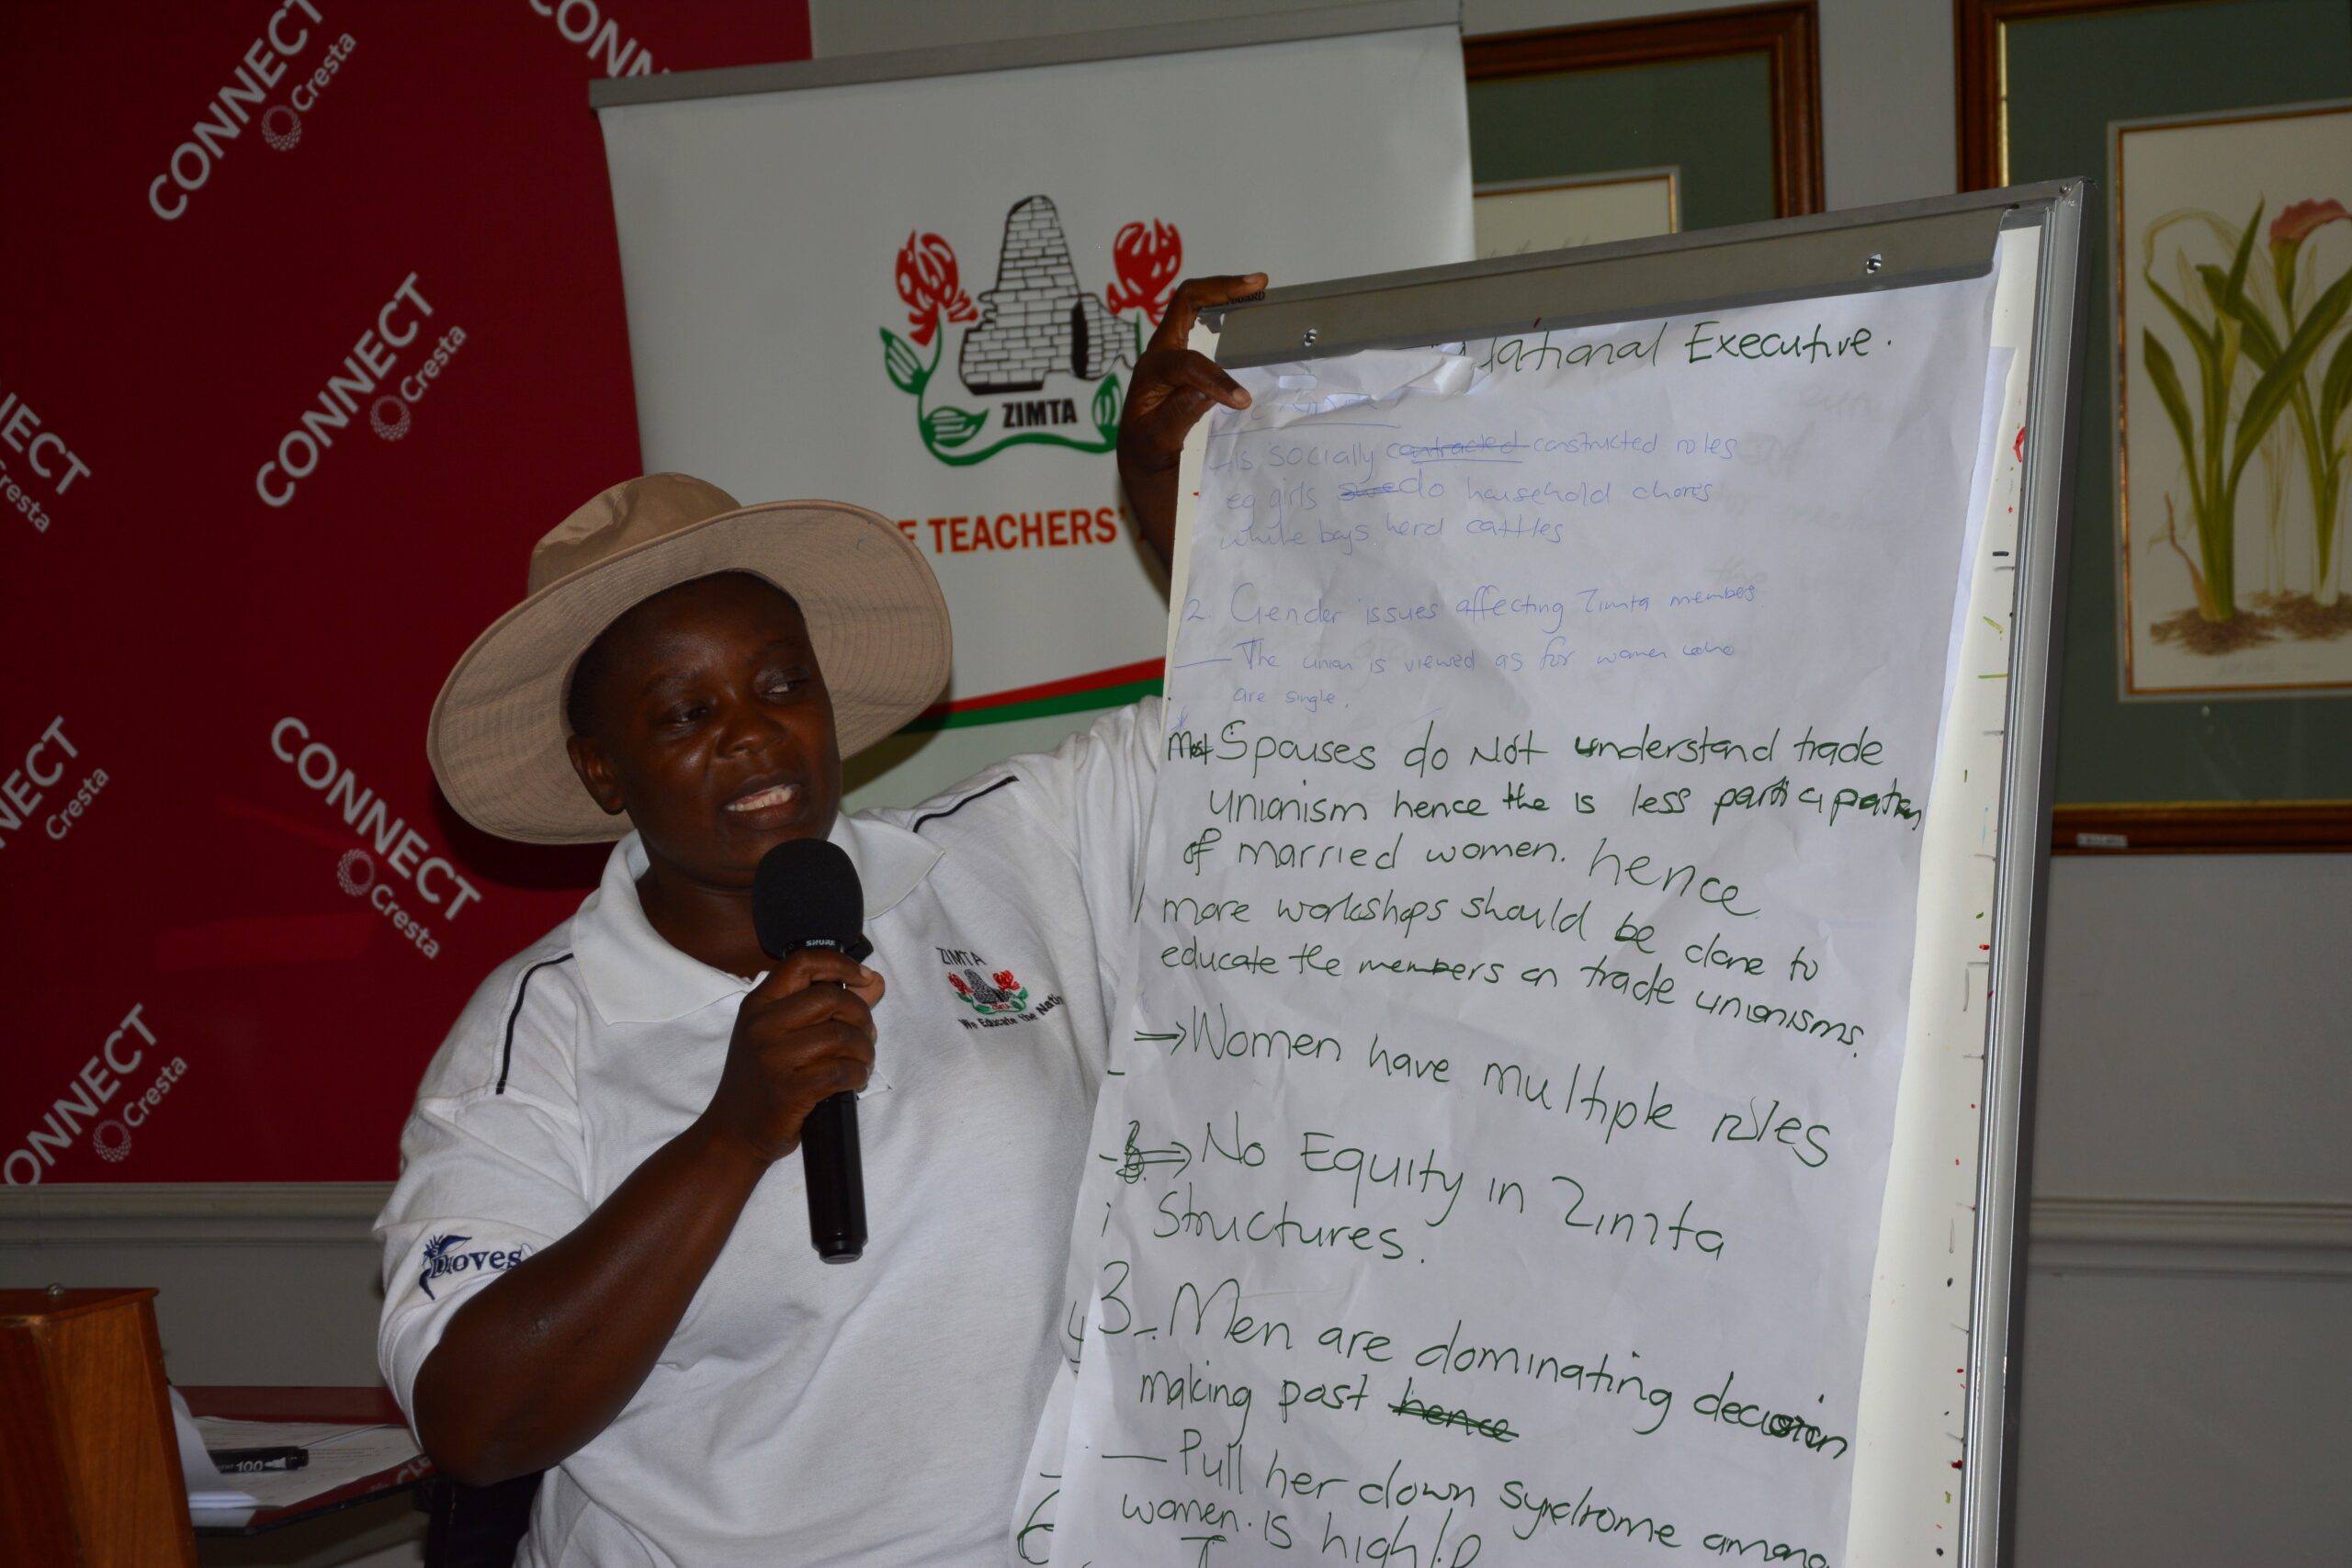 CONNECT
Cresta
CONN
CONNECT
Cresta
NECT
Cresta
CONNECT
Cresta
NNECT
Cresta
ONNECT
Cresta
ZIMTA
E TEACHERS'
SHURE
ZIMTA
We Educate the Natio
Doves
100
National Executive.
is socially contracted constructed roles
eg girls do household chores
while boys herd cattles
2. Gender issues affecting Zimta members.
— The union is viewed as for women who
are single.
Most Spouses do Not understand trade
unionism hence the is less participation
of married women. hence
more workshops should be done to
educate the members on trade unionisms.
⇒ Women have multiple roles
- ⇒ No Equity in Zimta
structures.
3. - Men are dominating decision
making past hence
— Pull her down syndrome among
women. is high